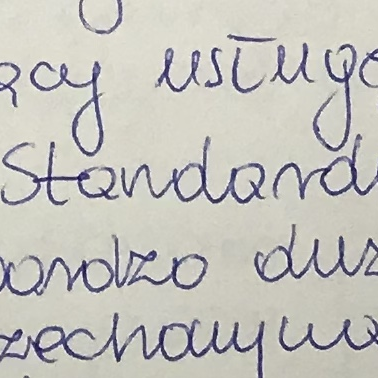 ący usługę
Standard
bardzo duż
zechowywa